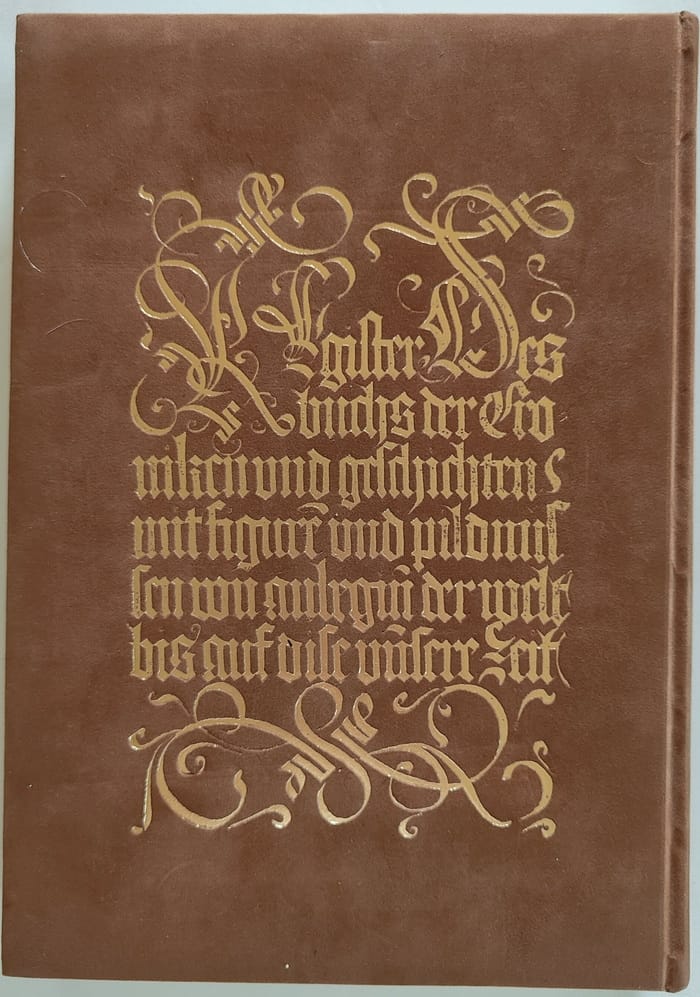 REgister Des
buchs der Cro
niken und geschichten
mit figurē und pildnus
sen von anbegiñ der welt
bis auf dise unsere Zeit